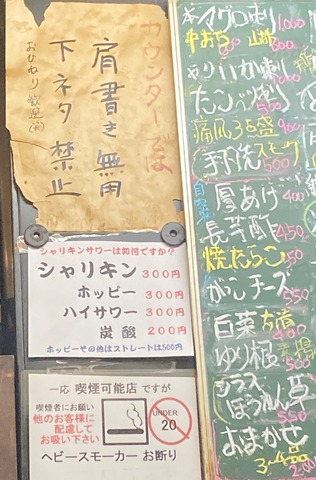 カウンターでは
肩書き無用
下ネタ禁止
おひねり歓迎(笑)
シャリキンサワーは如何ですか?
シャリキン 300円
ホッピー 300円
ハイサワー 300円
炭酸 200円
ホッピーその他はストレートは500円
一応 喫煙可能店 ですが
喫煙者にお願い
他のお客様に
配慮して
お吸い下さい
UNDER
20
ヘビースモーカー お断り
本マグロ刺 1,000
中おち 600
やりいか刺
500
痛風3点盛 900
500
厚あげ 400
長芋酢 450
焼たらこ
チーズ 550
白菜古漬 400
ゆり根
シラス
ほうれん草
550
おまかせ
3〜4品